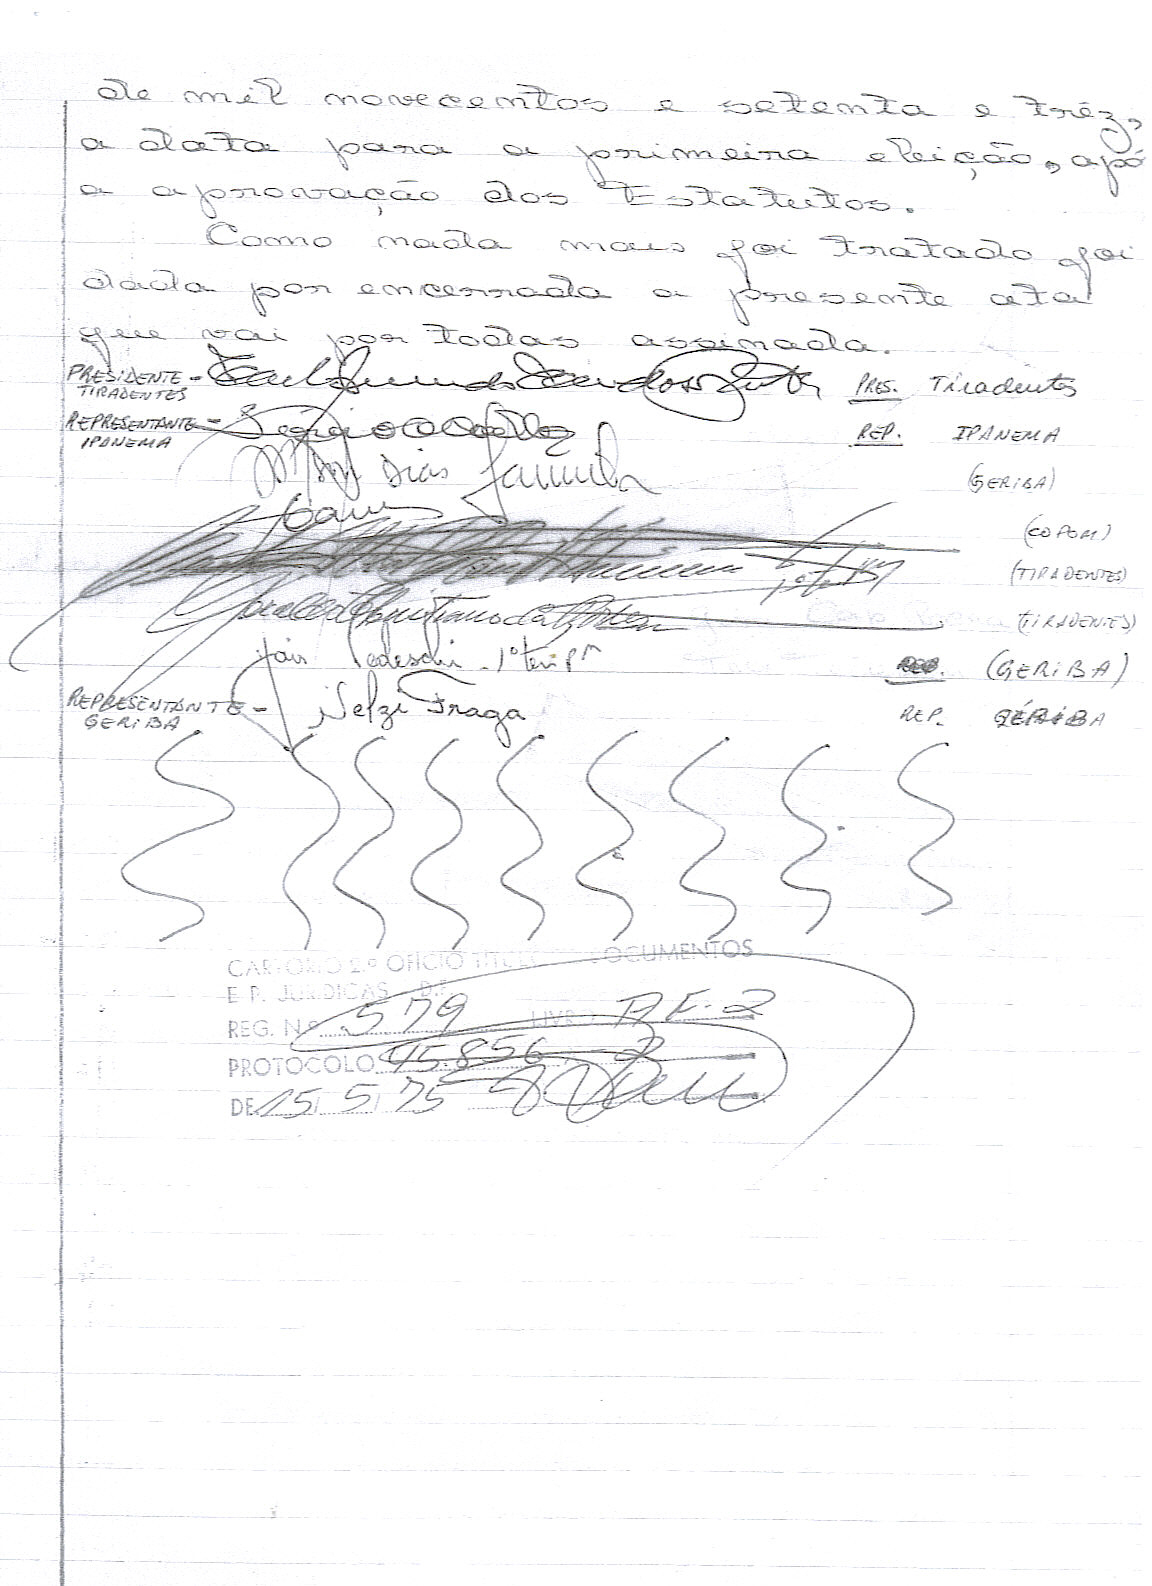 de mil novecentos e setenta e trêz,
a data para a primeira eleição, apó
a aprovação dos Estatutos.
Como nada mais foi tratado foi
dada por encerrada a presente ata
que vai por todas assinada.
PRESIDENTE - PRES. Tiradentes
TIRADENTES
REPRESENTANTE - REP. IPANEMA
IPANEMA
Dias (GERIBA)
(COPOM)
(TIRADENTES)
(TIRADENTES)
Jair Tedeschi - 1º Ten PM REP. (GERIBA)
REPRESENTANTE - Nelzi Fraga REP. GERIBA
GERIBA
CARTORIO 2.º OFICIO DOCUMENTOS
E P. JURIDICAS - D.F.
REG. N.º 579 LIVRO AF-2
PROTOCOLO 45.856
DE 15, 5, 75